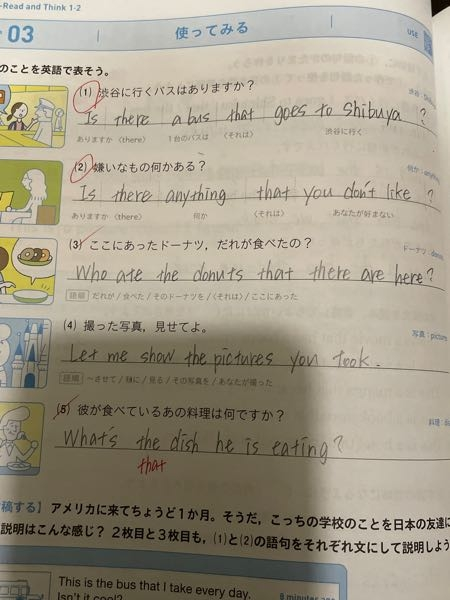 -Read and Think 1-2
03 使ってみる USE
のことを英語で表そう。
(1) 渋谷に行くバスはありますか?
渋谷:
Is there a bus that goes to Shibuya ?
ありますか〈there〉 1台のバスは 〈それは〉 渋谷に行く
(2) 嫌いなもの何かある?
何か:anything
Is there anything that you don't like ?
ありますか〈there〉 何か 〈それは〉 あなたが好まない
(3) ここにあったドーナツ,だれが食べたの?
ドーナツ:donuts
Who ate the donuts that there are here?
語順 だれが/食べた/そのドーナツを/〈それは〉/ここにあった
(4) 撮った写真,見せてよ。
写真:picture
Let me show the pictures you took.
語順 ~させて/私に/見る/その写真を/あなたが撮った
(5) 彼が食べているあの料理は何ですか?
料理:
What's the dish he is eating?
that
稿する】 アメリカに来てちょうど1か月。そうだ,こっちの学校のことを日本の友達に
説明はこんな感じ? 2枚目と3枚目も,(1)と(2)の語句をそれぞれ文にして説明しよう
This is the bus that I take every day.
Isn't it cool?
8 minutes ago